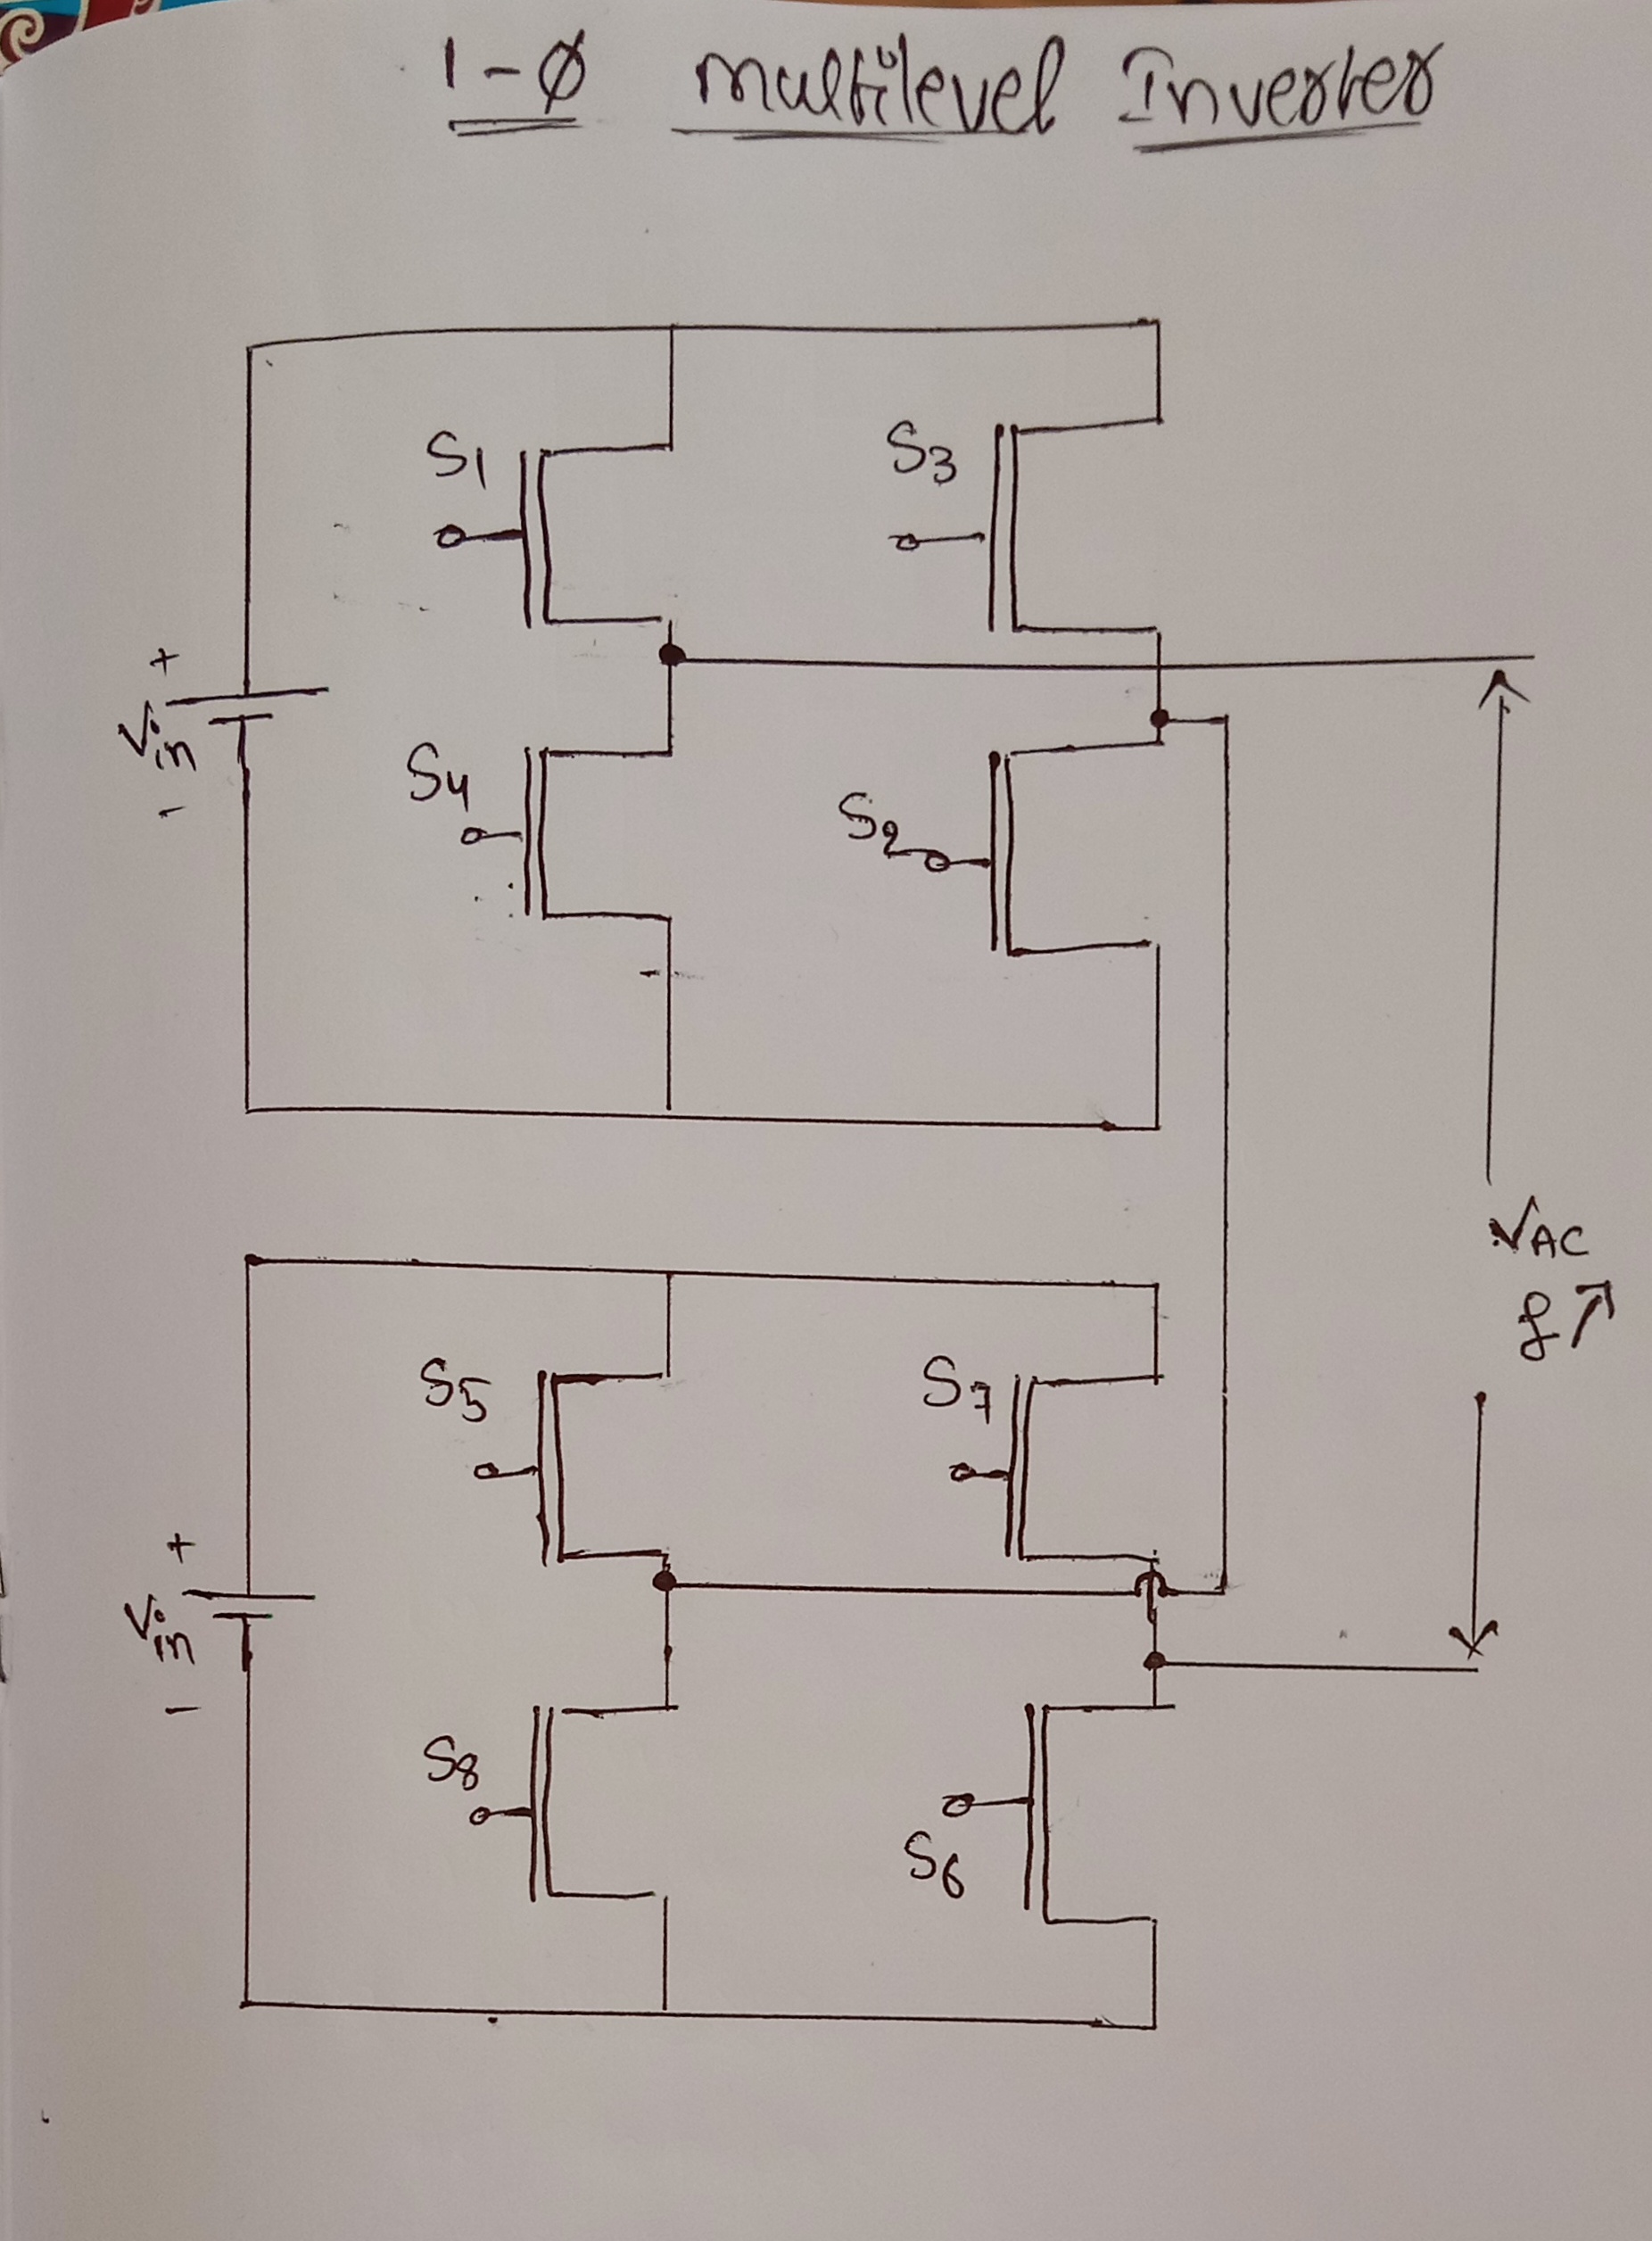 1-Ø multilevel Inverter
S1
S3
+
Vin
-
S4
S2
VAC
f↗
S5
S7
+
Vin
-
S8
S6